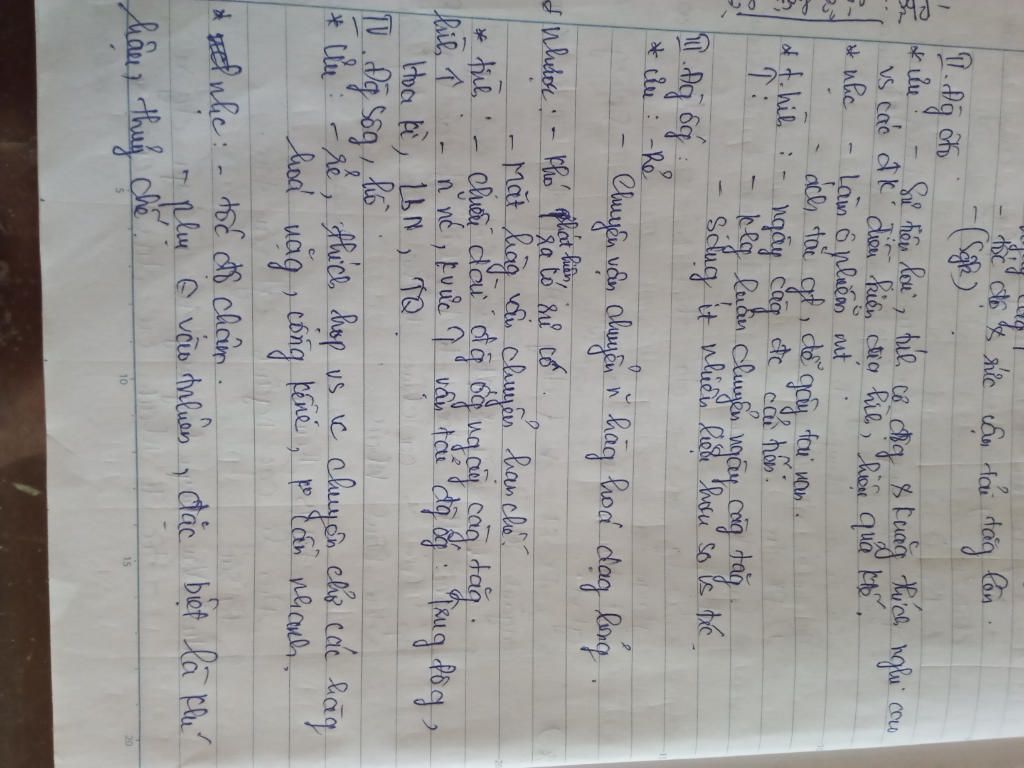 - tốc độ & sức vận tải tăg lên.
- (Sgk)
II. Đg ôtô
* ưu: - Sự tiện lợi, tính cơ độg & knăg thích nghi cao
vs các đk điểm hiền địa hìh, hiệu quả ktế.
* nhc - Làm ô nhiễm mt.
- ách tắc gt, dễ gây tai nạn.
* t.hìh : - ngày càg đc cải tiến.
↑: - klg luân chuyển ngày càg tăg.
- sdụg ít nhiên liệu hơn so vs trc
III. Đg ốg :
* ưu : - Rẻ
- Chuyên vận chuyển n hàg hoá dạg lỏng.
* Nhược : - khó phát hiện, xra có sự cố.
- Mặt hàg vận chuyển hạn chế.
* tìh : - chiều dài đg ốg ngày càg tăg.
hìh ↑ - n nc, kvực ↑ vận tải đg ốg: Trug Đôg,
Hoa kì, LBN, TQ
IV. Đg sôg, hồ
* ưu : - rẻ, thích hợp vs vc chuyên chở các hàg
hoá nặg, cồng kềnh, ko cần nhanh.
* nhc : - tốc độ chậm.
- phụ vào tnhiên, đặc biệt là khí
hậu, thuỷ chế.